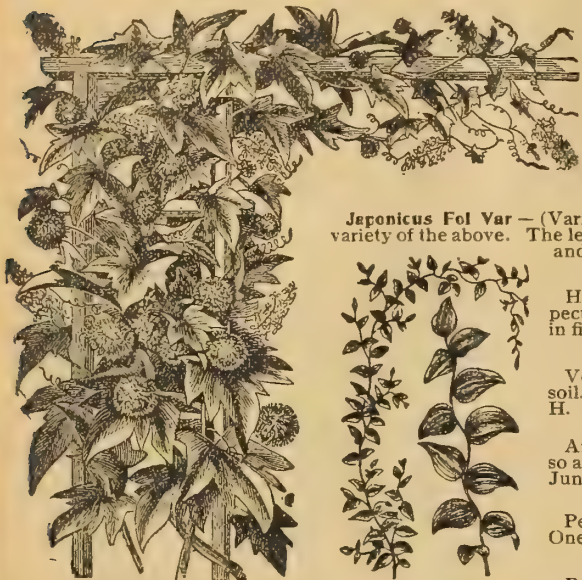 Japonicus Fol Var — (Var
variety of the above. The le
and
H
pec
in fi
V
soil.
H.
A
so a
Jun
Pe
One